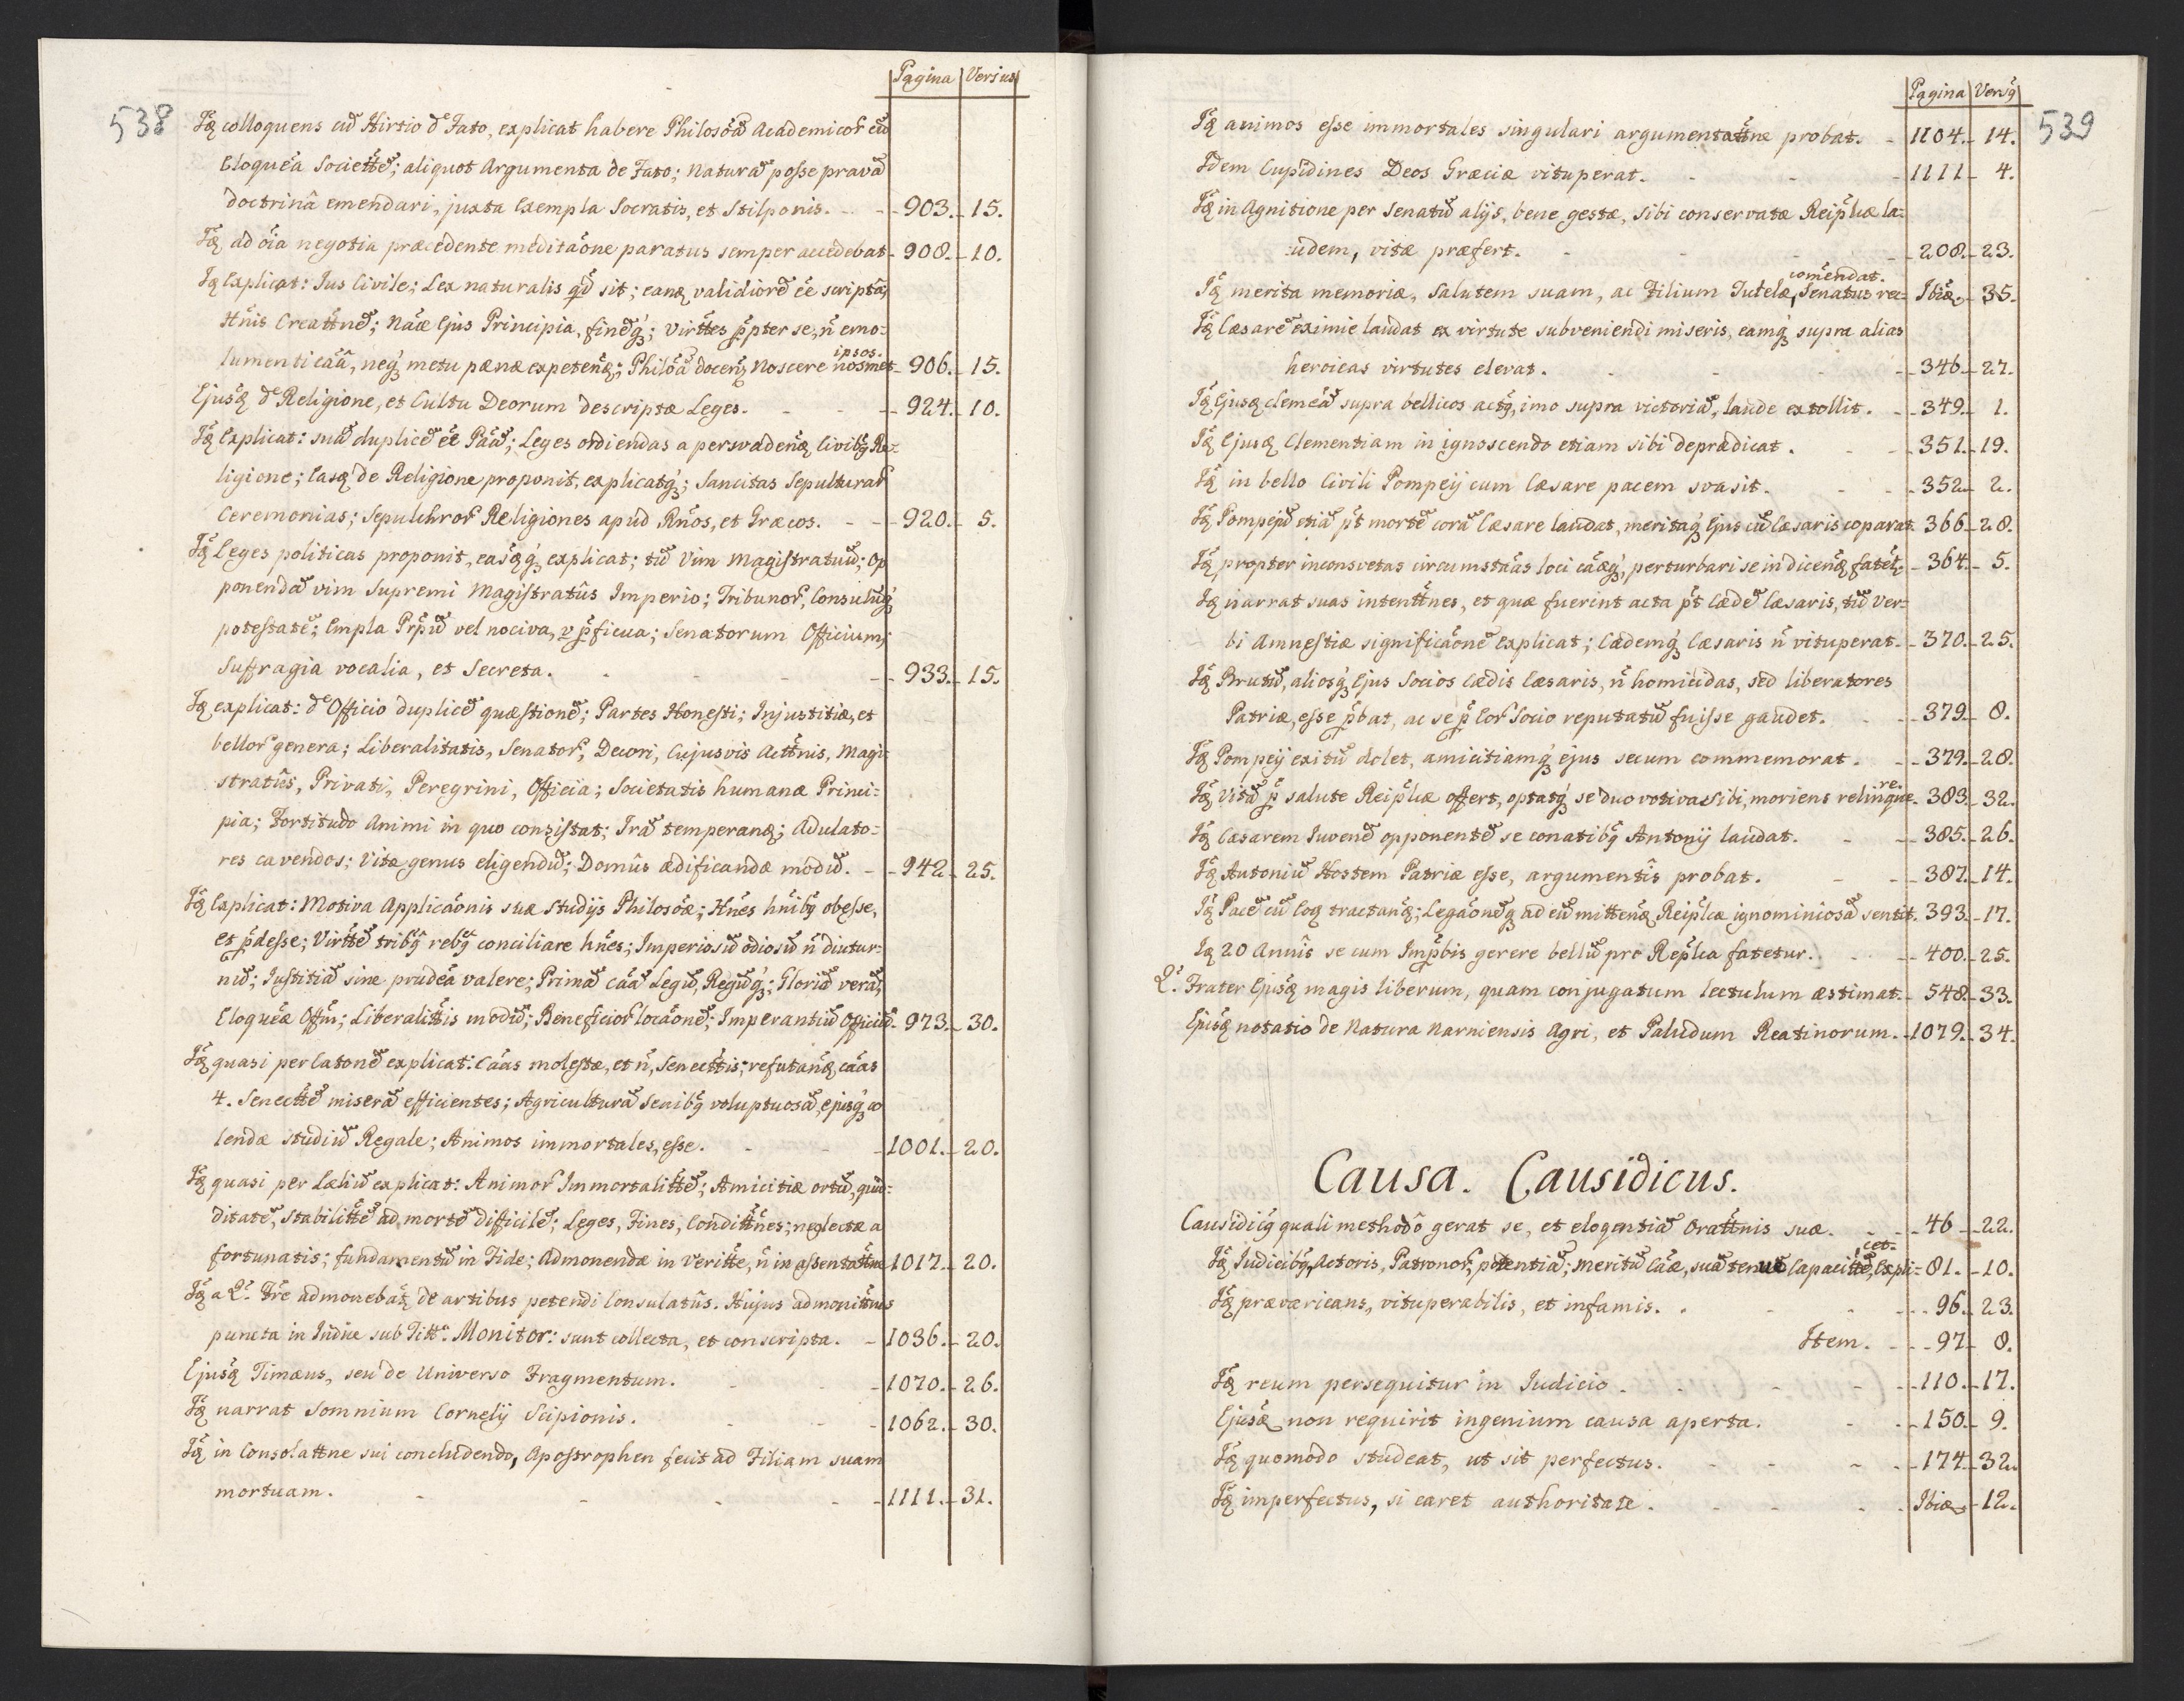 Pagina Versus
538
Iđ colloquens cũ Hirtio đ Fato, explicat habere Philosõã Academicor̃ cũ
Eloquẽa Societt̃ẽ; aliquot Argumenta de Fato; Naturã posse pravã
doctrinâ emendari, juxta Exempla Socratis, et Stilponis. - 903. - 15.
Iđ ad õia negotia præcedente meditãone paratus semper accedebat - 908. - 10.
Iđ Explicat: Jus Civile; Lex naturalis qđ sit; eanđ validiorẽ ẽe scriptâ;
Hñis Creatt̃nẽ; Nãæ Ejus Principia, finẽq́;; Virt̃tes p̃pter se, ñ emo:
ipsos.
lumenti cãâ, neq́; metu pænæ expetenđ; Philõã docenđ Noscere nosmet - 906. - 15.
Ejusđ đ Religione, et Cultu Deorum descriptæ Leges. - 924. - 10.
Iđ Explicat: suã duplicẽ ẽe Pãã; Leges ordiendas a persvadenđ Civibq̃ Re:
ligione; Easđ de Religione proponit, explicatq́;; Sancitas Sepulturar̃
Ceremonias; Sepulchror̃ Religiones apud Rños, et Græcos. - 920. - 5.
Iđ Leges politicas proponit, easđq́; explicat; tũ Vim Magistratuũ; Op
ponendã vim Supremi Magistratûs Imperio; Tribunor̃, Consulũq́;
potestatẽ; Empla Pr̃pũ vel nociva, v p̃ficua; Senatorum Officium;
Suffragia vocalia, et Secreta. - 933. - 15.
Iđ explicat: đ Officio duplicẽ quæstionẽ; Partes Honesti; Injustitiæ, et
bellor̃ genera; Liberalitatis, Senator̃, Decori, Cujusvis Actt̃nis, Magi
stratûs, Privati, Peregrini, Officia; Societatis humanæ Princi:
pia; Fortitudo Animi in quo consistat; Irã temperanđ; Adulato:
res cavendos; Vitæ genus eligendũ; Domûs ædificandæ modũ. - 942 - 25.
Iđ Explicat: Motiva Applicãonis suæ Studijs Philosõæ; Hñes hñibq̃ obesse,
et p̃desse; Virtt̃ẽ tribq̃ rebq̃ conciliare hñes; Imperiosũ odiosũ ñ diutur:
nũ; Justitiã sine prudẽa valere; Primã cãã Legũ, Regũq́;; Gloriã verã;
Eloquẽæ Off̃m; Liberalitt̃is modũ; Beneficior̃ locãonẽ; Imperantiũ Officiũ - 973. - 30.
Iđ quasi per Catonẽ explicat: Cãas molestæ, et ñ, Senectt̃is; refutanđ cãas
4. Senectt̃ẽ miserã efficientes; Agriculturã Senibq̃ voluptuosã, ejusq́; co
lendæ studiũ Regale; Animos immortales, esse. - 1001. - 20.
Iđ quasi per Læliũ explicat: Animor̃ Immortalitt̃ẽ; Amicitiæ ortũ,
ditatẽ, Stabilitt̃ẽ ad mortẽ difficilẽ; Leges, Fines, Conditt̃nes; neglectæ a
fortunatis; fundamentũ in Fide; Admonendæ in Veritt̃e, ñ in assentatt̃ne 1017. - 20.
Iđ a Q̃. Fr̃e admonebat̃ de artibus petendi Consulatûs. Hujus admonitt̃nis
puncta in Indice sub Titt̃º Monitor: sunt collecta, et conscripta. - 1036. - 20.
Ejusđ Timæus, seu de Universo Fragmentum. - 1070. - 26.
Iđ narrat Somnium Cornelij Scipionis. - 1062. - 30.
Iđ in Consolattne sui concludendo, Apostrophen fecit ad Filiam suam
mortuam. - 1111. - 31.
Pagina Versq̃
539
Iđ animos esse immortales singulari argumentatt̃ne probat. - 1104. - 14.
Idem Cupidines Deos Græciæ vituperat. - 1111 - 4.
Iđ in Agnitione per Senatũ alijs, bene gestæ, sibi conservatæ Reip̃licæ la:
udem, vitæ præfert. - 208. - 23.
comẽndat.
Iđ merita memoriæ, Salutem suam, ac Filium Tutelæ, Senatus - Ibiđ - 35.
Iđ Cæsarẽ eximie laudat ex virtute subveniendi miseris, eamq́; supra alias
heroicas virtutes elevat. - 346. - 27.
Iđ Ejusđ clemẽã supra bellicos actq̃, imo supra victoriã, laude extollit. - 349. - 1.
Iđ Ejusđ Clementiam in ignoscendo etiam sibi deprædicat. - 351. - 19.
Iđ in bello Civili Pompeij cum Cæsare pacem svasit. - 352. - 2.
Iđ Pompejũ etiã p̃t mortẽ corã Cæsare laudat, meritaq́; Ejus cũ Cæsaris coparat. 366. - 28.
Iđ propter inconsvetas circumstãas loci cãæq́;, perturbari se in dicenđ fatet̃ - 364. - 5.
Iđ narrat suas intentt̃nes, et quæ fuerint acta p̃t Cædẽ Cæsaris, tũ Ver:
bi Amnestiæ significãonẽ explicat; Cædemq́; Cæsaris ñ vituperat. - 370. - 25.
Iđ Brutũ, aliosq́; Ejus Socios Cædis Cæsaris, ñ homicidas, sed liberatores
Patriæ, esse p̃bat, ac se p̃ Eor̃ Socio reputatũ fuisse gaudet. - 379. - 8.
Iđ Pompeij exitũ dolet, amicitiamq́; ejus secum commemorat. - 379. - 28.
re.
Iđ Vitã p̃ salute Reip̃licæ offert, optatq́; se duo votiva sibi, moriens relinque - 383. - 32.
Iđ Cæsarem Juvenẽ opponentẽ se conatibq̃ Antonij laudat. - 385. - 26.
Iđ Antoniũ Hostem Patriæ esse, argumentis probat. - 387. - 14.
Iđ Pacẽ cũ Eođ tractanđ; Legãonẽq́; ad eũ mittenđ Reip̃licæ ignominiosã sentit. 393. - 17.
Iđ 20 Annis se cum Imp̃bis gerere bellũ pro Rep̃lica fatetur. - 400. - 25.
Q̃. Frater Ejusđ magis liberum, quam conjugatum lectulum æstimat. - 548. - 33.
Ejusđ notatio de Natura Narniensis Agri, et Paludum Reatinorum. - 1079. - 34.
Causa. Causidicus.
Causidicq̃ quali methodô gerat se, et elogentiã Oratt̃nis suæ. - 46 - 22.
cet.
Iđ Judicibq̃, Actoris, Patronor̃, potentiã; meritũ Cãæ, suã tenus Capacitt̃ẽ, Expli: 81. - 10.
Iđ prævaricans, vituperabilis, et infamis. - 96. - 23.
Item. - 97 - 8.
Iđ reum persequitur in Judicio. - 110. - 17.
Ejusđ non requirit ingenium causa aperta. - 150. - 9.
Iđ quomodo studeat, ut sit perfectus. - 174. - 32.
Iđ imperfectus, si caret authoritate. - Ibiđ - 12.